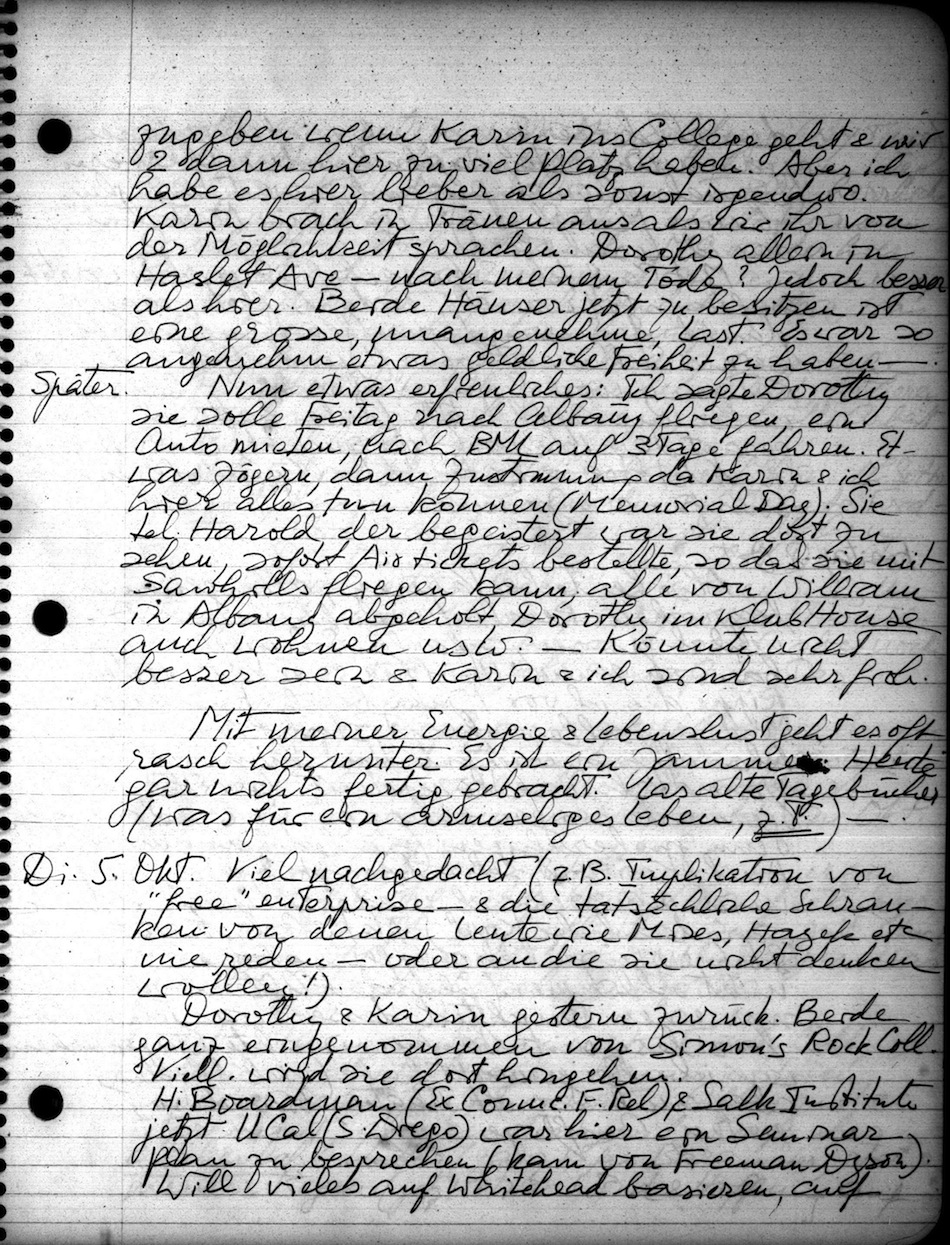 zugeben wenn Karin ins College geht & wir
2 dann hier zu viel Platz haben. Aber ich
habe es hier lieber als sonst irgendwo.
Karin brach in Tränen aus als wir ihr von
der Möglichkeit sprachen. Dorothy allein in
Haslet Ave — nach meinem Tode? Jedoch besser
als hier. Beide Häuser jetzt zu besitzen ist
eine grosse, unangenehme, Last. Es war so
angenehm etwas geldliche Freiheit zu haben —.
Später. Nun etwas erfreuliches: Ich sagte Dorothy
sie solle Freitag nach Albany fliegen, ein
Auto mieten, nach BML auf 3 Tage fahren. Et-
was Zögern, dann Zustimmung da Karin & ich
hier alles tun können (Memorial Day). Sie
tel. Harold, der begeistert war sie dort zu
sehen, sofort Airtickets bestellte, so das sie mit
fliegen kann, alle von William
in Albany abgeholt, Dorothy im Klub House
auch wohnen usw. — Könnte nicht
besser sein & Karin & ich sind sehr froh.
Mit meiner Energie & Lebenslust geht es oft
rasch herunter. Es ist ein Jammer. Heute
gar nichts fertig gebracht. Las alte Tagebücher
(was für ein armseliges Leben, z.T.) —.
Di. 5. Okt. Viel nachgedacht (z.B. Implikation von
"free" enterprise — & die tatsächliche Schran-
ken von denen Leute wie Mises, Hayek etc
nie reden — oder an die sie nicht denken
wollen!).
Dorothy & Karin gestern zurück. Beide
ganz eingenommen von Simon's Rock Coll.
Viell. wird sie dort hingehen.
H. Boardman (Ex Counc. F. Rel) & Salk Institute
jetzt U Cal (S. Diego) war hier ein Seminar
plan zu besprechen (kam von Freeman Dyson).
Will vieles auf Whitehead basieren, auf